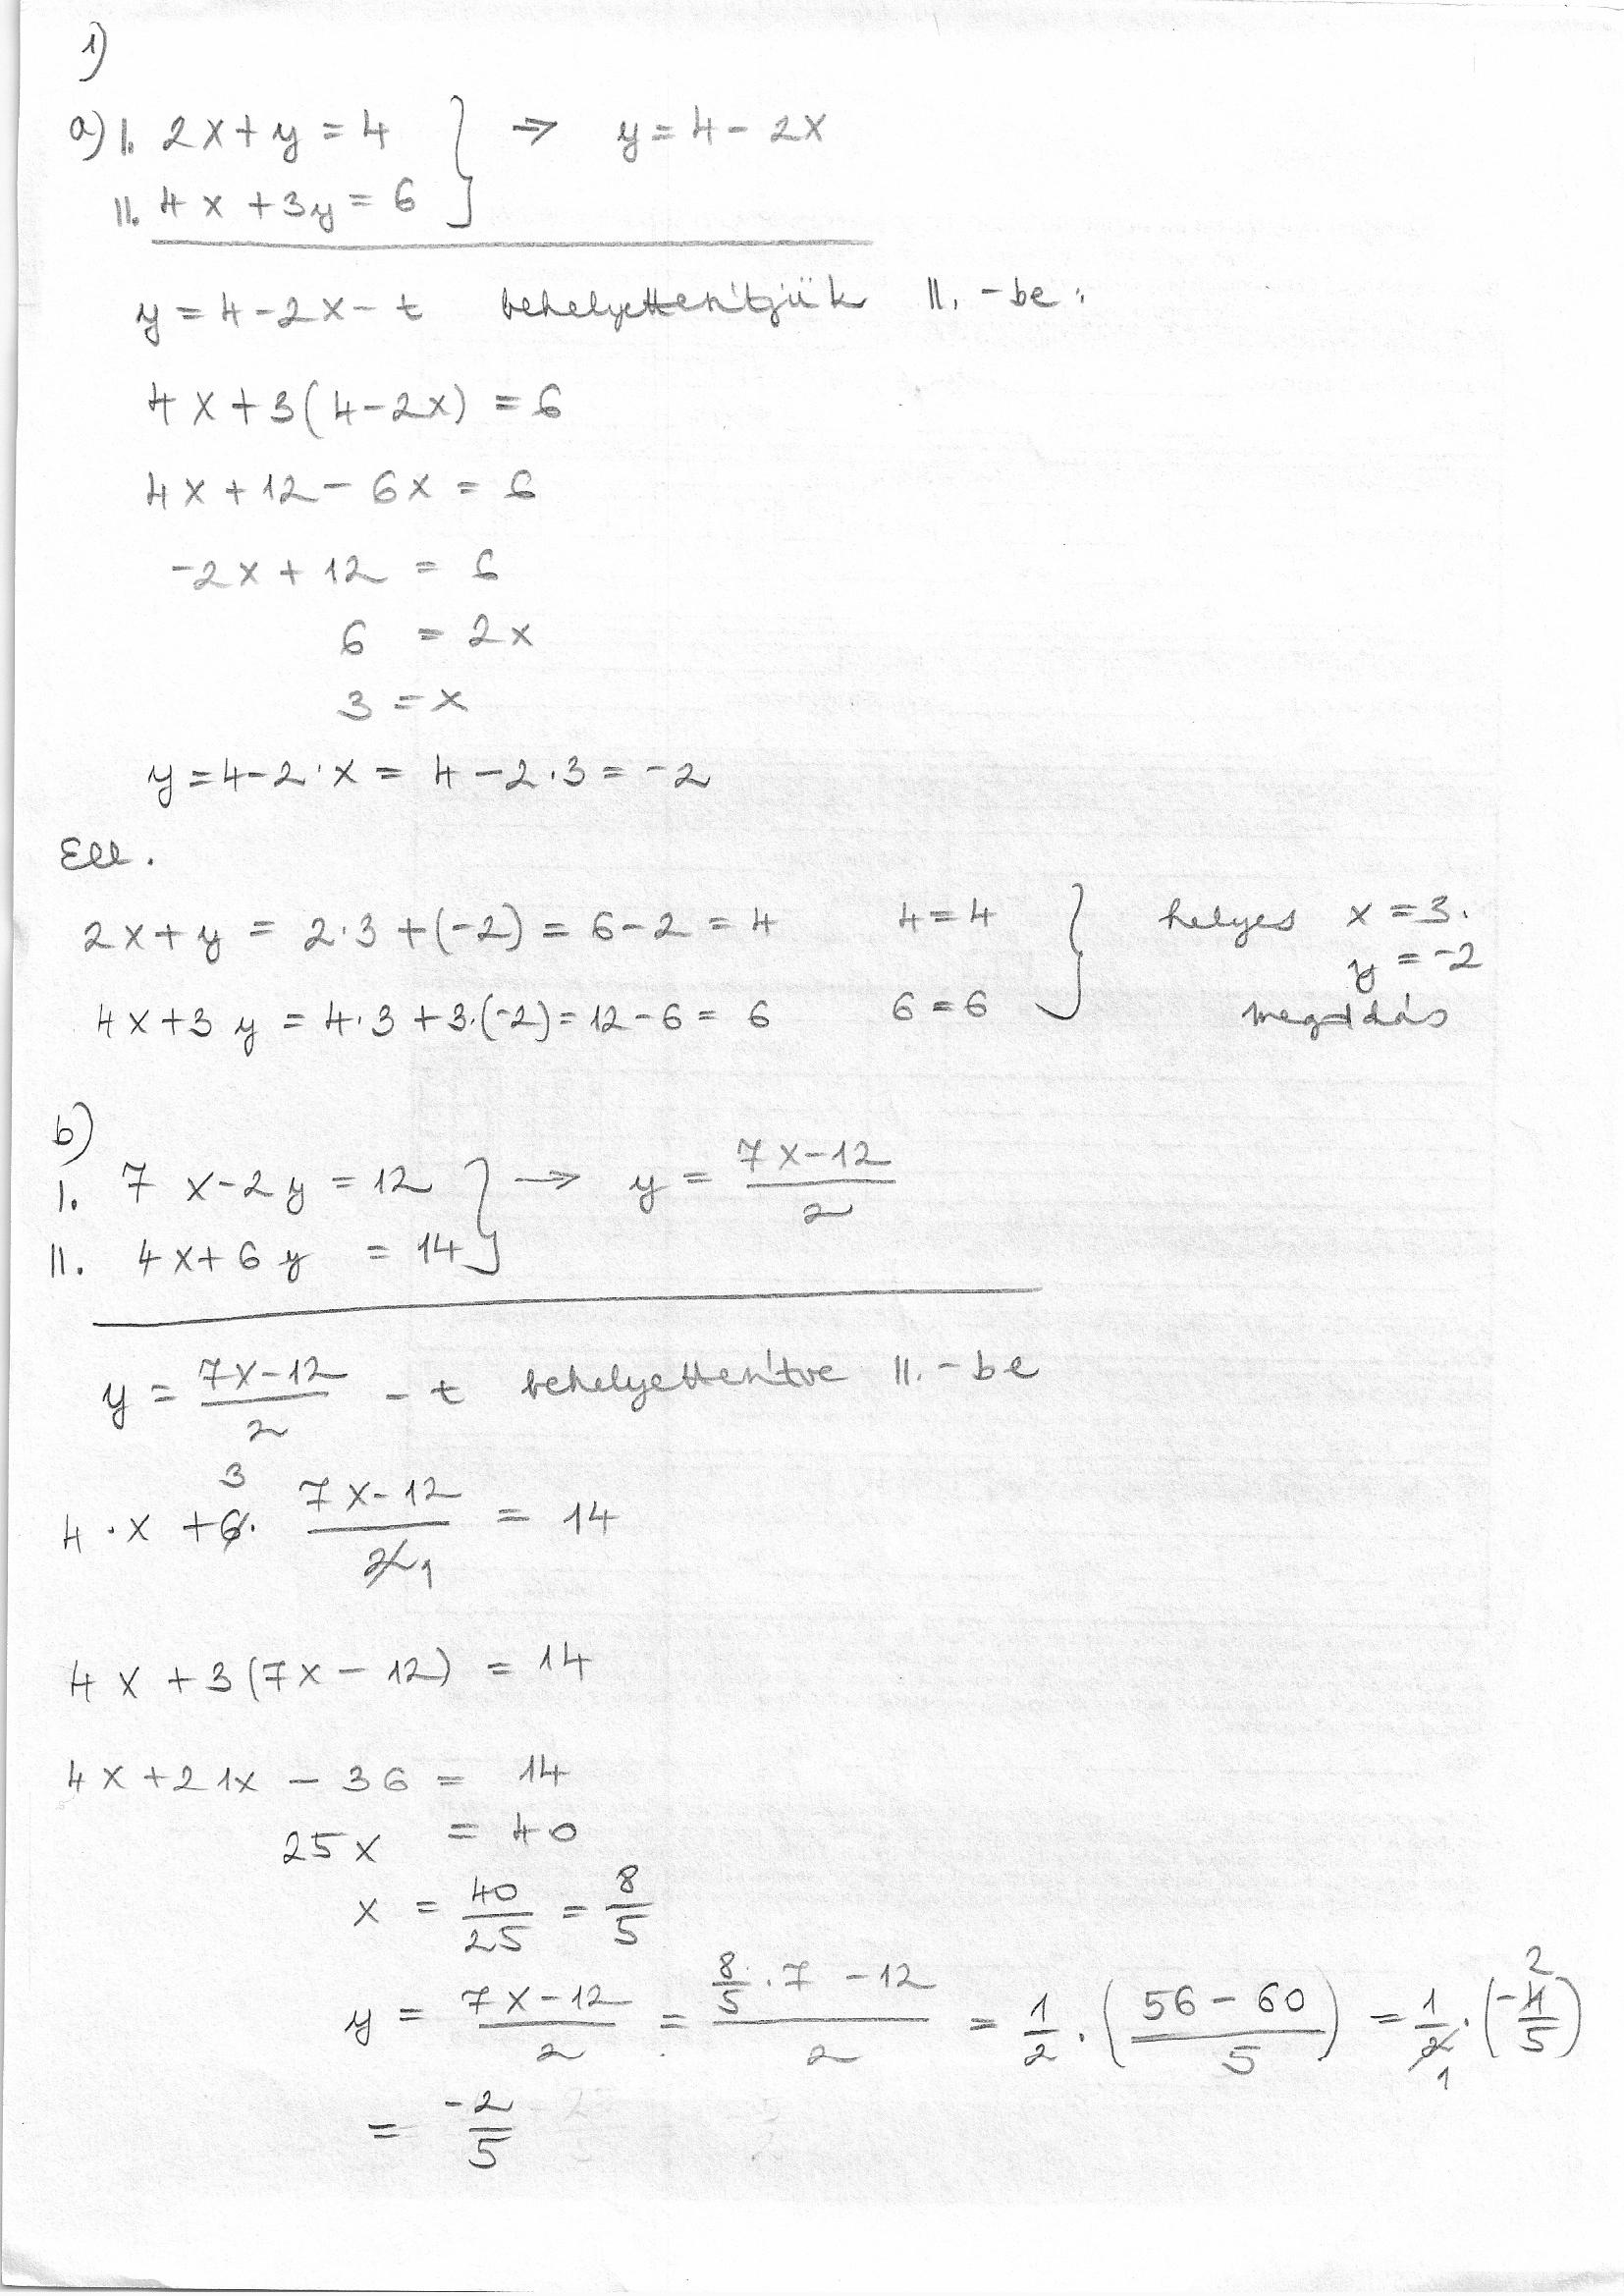 1)
a) I. 2x + y = 4 } → y = 4 - 2x
II. 4x + 3y = 6
y = 4 - 2x - t behelyettesítjük II. - be:
4x + 3(4 - 2x) = 6
4x + 12 - 6x = 6
-2x + 12 = 6
6 = 2x
3 = x
y = 4 - 2·x = 4 - 2·3 = -2
Ell.
2x + y = 2·3 + (-2) = 6 - 2 = 4 4 = 4 } helyes x = 3.
y = -2
4x + 3y = 4·3 + 3·(-2) = 12 - 6 = 6 6 = 6 megoldás
b)
I. 7x - 2y = 12 } → y = (7x - 12)/2
II. 4x + 6y = 14
y = (7x - 12)/2 - t behelyettesítve II. - be
3
4·x + 6· (7x - 12)/2 1 = 14
4x + 3(7x - 12) = 14
4x + 21x - 36 = 14
25x = 40
x = 40/25 = 8/5
y = (7x - 12)/2 = (8/5·7 - 12)/2 = 1/2·((56 - 60)/5) = 1/2 1·(-4/5) 2
= -2/5